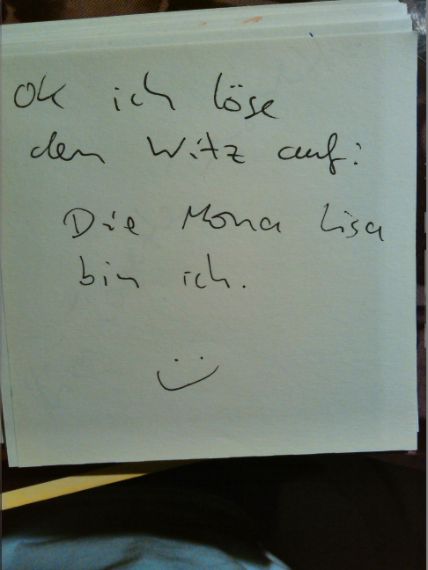 OK ich löse
den Witz auf:
Die Mona Lisa
bin ich.